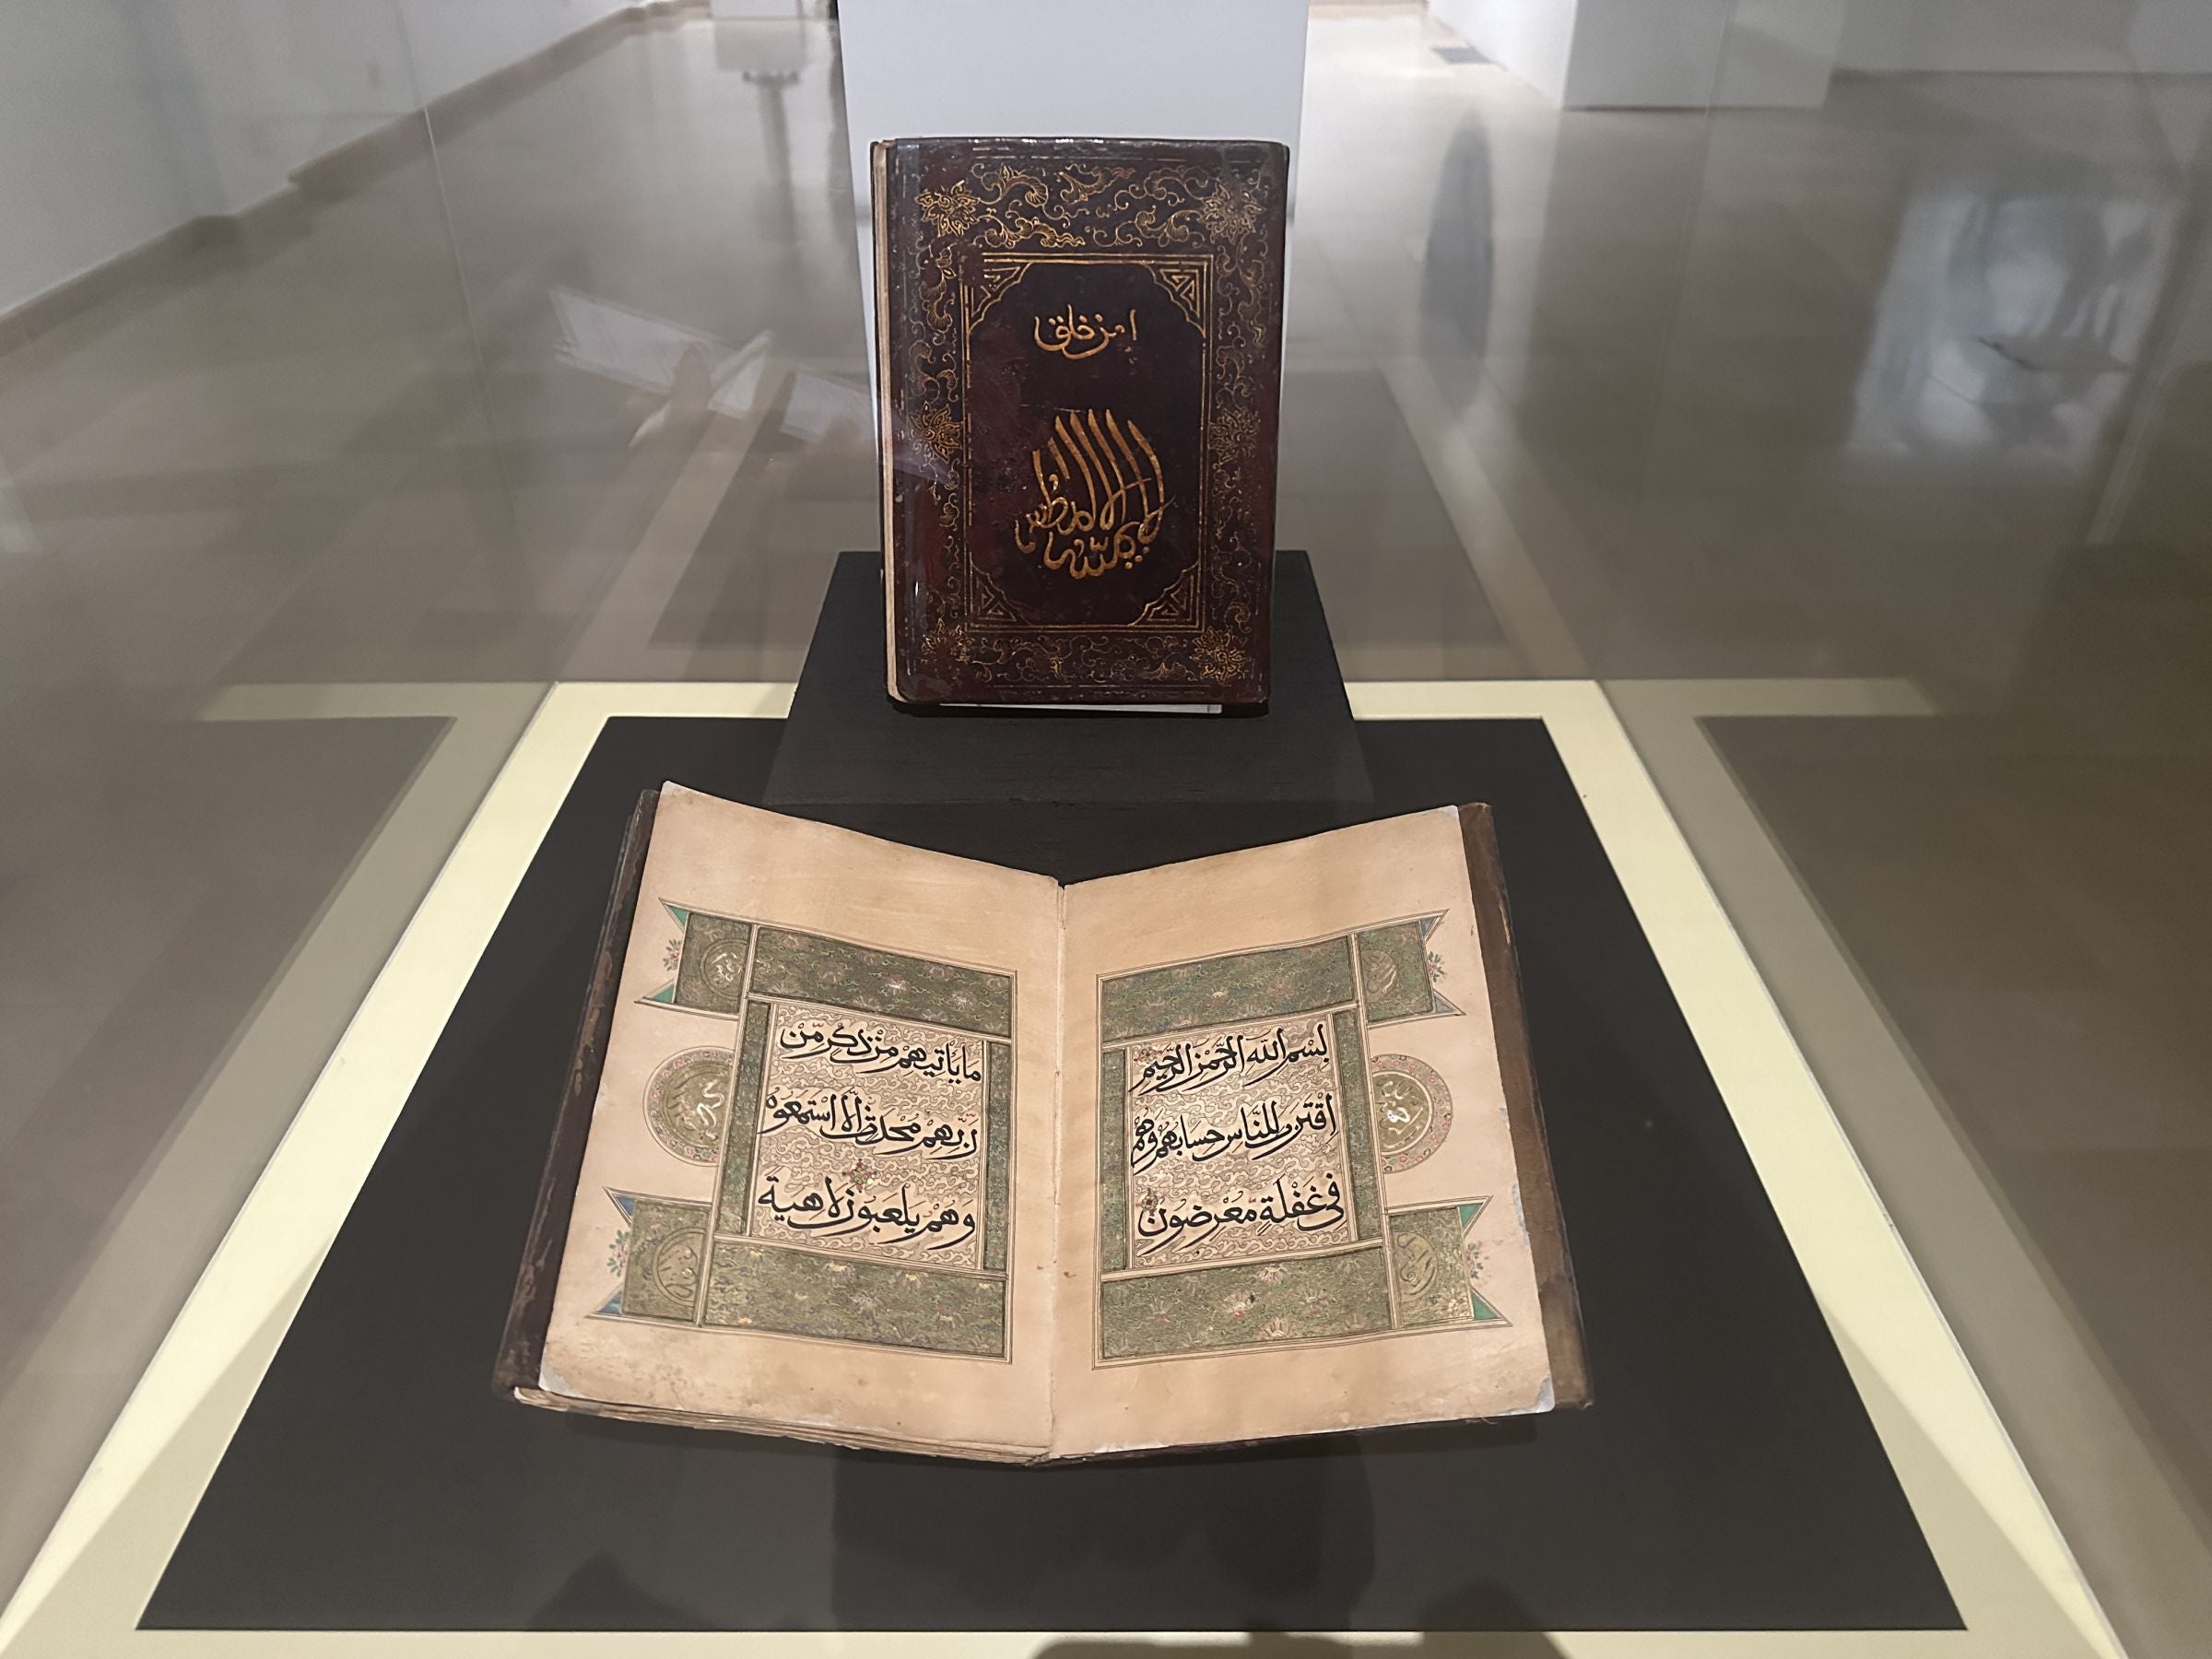 امن خلق
لا يمسه الا المطهرون
بِسْمِ اللَّهِ الرَّحْمٰنِ الرَّحِيمِ
اقْتَرَبَ لِلنَّاسِ حِسَابُهُمْ وَهُمْ
فِي غَفْلَةٍ مُّعْرِضُونَ
مَا يَأْتِيهِمْ مِنْ ذِكْرٍ مِّنْ
رَبِّهِمْ مُحْدَثٍ إِلَّا اسْتَمَعُوهُ
وَهُمْ يَلْعَبُونَ لَاهِيَةً